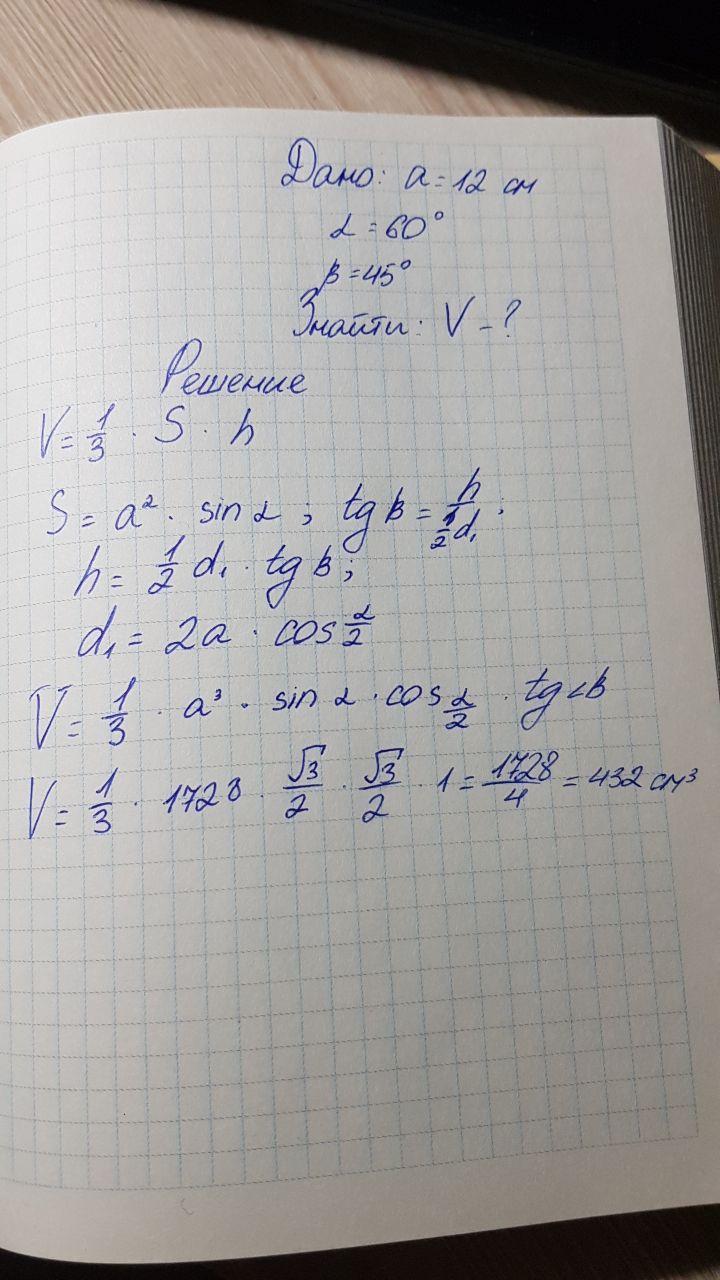 Дано: a = 12 см
α = 60°
β = 45°
Знайти: V - ?
Решение
V = 1/3 · S · h
S = a² · sin α ; tg β = h / (1/2 d₁) ;
h = 1/2 d₁ · tg β ;
d₁ = 2a · cos α/2
V = 1/3 · a³ · sin α · cos α/2 · tg ∠β
V = 1/3 · 1728 · √3/2 · √3/2 · 1 = 1728/4 = 432 см³